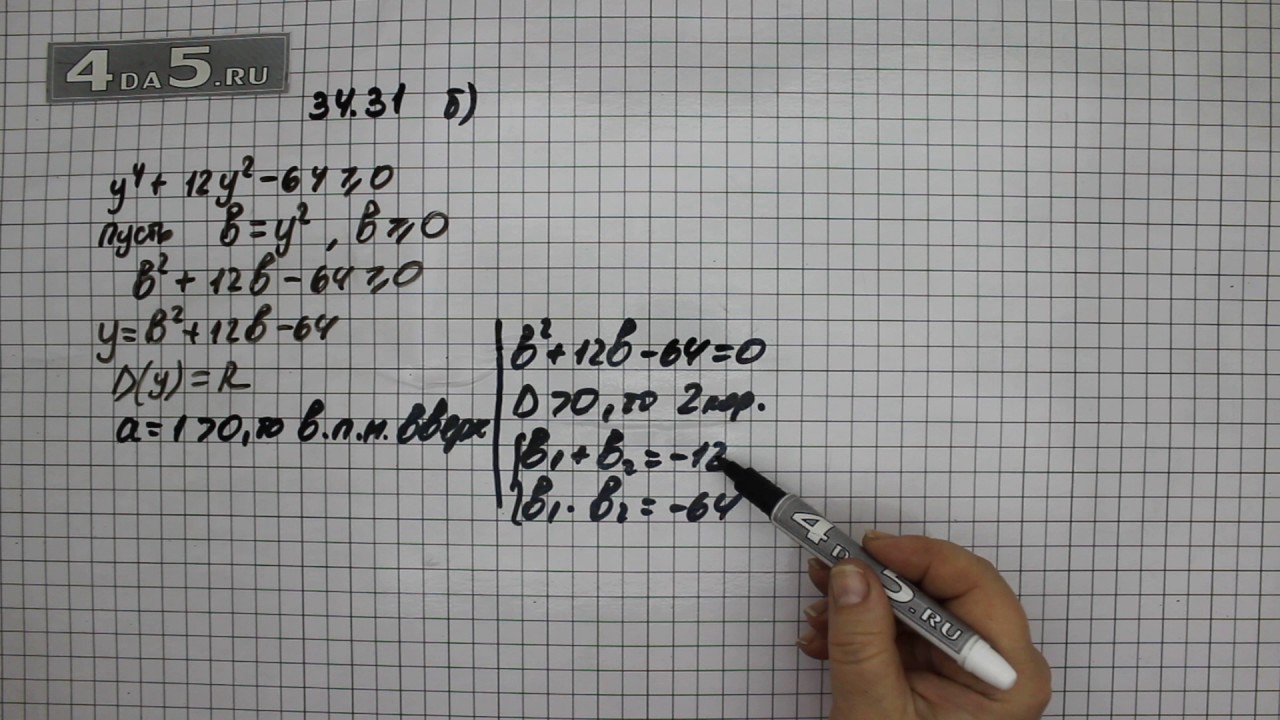 4DA5.RU
34.31 б)
y⁴ + 12y² - 64 ⩾ 0
пусть в = y², в ⩾ 0
в² + 12в - 64 ⩾ 0
y = в² + 12в - 64
D(y) = R
a = 1 > 0, то в.п.н. вверх
в² + 12в - 64 = 0
D > 0, то 2 кор.
{в₁ + в₂ = -12
{в₁ · в₂ = -64
4DA5.RU